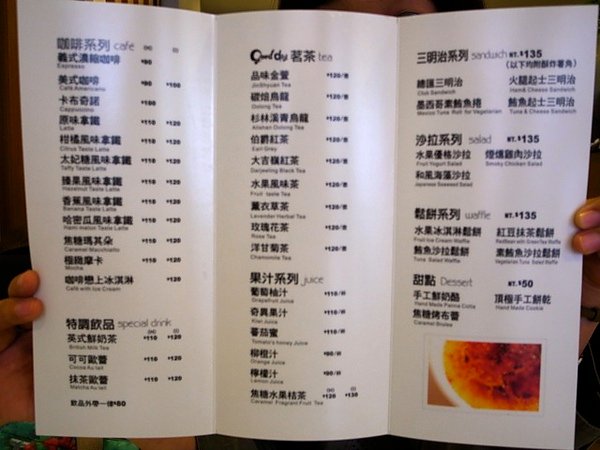 咖啡系列 cafe (H) (I)
義式濃縮咖啡 $90
Espresso
美式咖啡 $90 $100
Café Americano
卡布奇諾 $100
Cappuccino
原味拿鐵 $110 $120
Latte
柑橘風味拿鐵 $110 $120
Citrus Taste Latte
太妃糖風味拿鐵 $110 $120
Taffy Taste Latte
榛果風味拿鐵 $110 $120
Hazelnut Taste Latte
香蕉風味拿鐵 $110 $120
Banana Taste Latte
哈密瓜風味拿鐵 $110 $120
Hami melon Taste Latte
焦糖瑪其朵 $110 $120
Caramel Macchiatto
極緻摩卡 $110 $120
Mocha
咖啡戀上冰淇淋 $120
Café with Ice Cream
特調飲品 special drink (H) (I)
英式鮮奶茶 $110 $120
British Milk Tea
可可歐蕾 $110 $120
Cocoa Au lait
抹茶歐蕾 $110 $120
Matcha Au lait
飲品外帶一律$80
Good day 茗茶 tea
品味金萱 $120/壺
JinShyuan Tea
碳焙烏龍 $120/壺
Oolong Tea
杉林溪青烏龍 $120/壺
Alishan Oolong Tea
伯爵紅茶 $120/壺
Earl Grey
大吉嶺紅茶 $120/壺
Darjeeling Black Tea
水果風味茶 $120/壺
Fruit taste Tea
薰衣草茶 $120/壺
Lavender Herbal Tea
玫瑰花茶 $120/壺
Rose Tea
洋甘菊茶 $120/壺
Chamomile Tea
果汁系列 juice
葡萄柚汁 $110/杯
Grapefruit Juice
奇異果汁 $110/杯
Kiwi Juice
蕃茄蜜 $110/杯
Tomato's honey Juice
柳橙汁 $90/杯
Orange Juice
檸檬汁 $90/杯
Lemon Juice
(H) (I)
焦糖水果桔茶 $120 $130
Caramel Fragrant Fruit Tea
三明治系列 sandwich NT.$135
(以下均附酥炸薯角)
總匯三明治 火腿起士三明治
Club Sandwich Ham& Cheese Sandwich
墨西哥素鮪魚捲 鮪魚起士三明治
Mexico Tuna Roll for Vegetarian Tuna & Cheese Sandwich
沙拉系列 salad NT.$135
水果優格沙拉 煙燻雞肉沙拉
Fruit Yogurt Salad Smoky Chicken Salad
和風海藻沙拉
Japanese Seaweed Salad
鬆餅系列 waffle NT.$135
水果冰淇淋鬆餅 紅豆抹茶鬆餅
Fruit Ice Cream Waffle RedBean with Green Tea Waffle
鮪魚沙拉鬆餅 素鮪沙拉鬆餅
Tuna Salad Waffle Vegetarian Tuna Salad Waffle
甜點 Dessert NT.$50
手工鮮奶酪 頂極手工餅乾
Hand Made Panna Cotta Hand Made Cookie
焦糖烤布蕾
Caramel Brulee